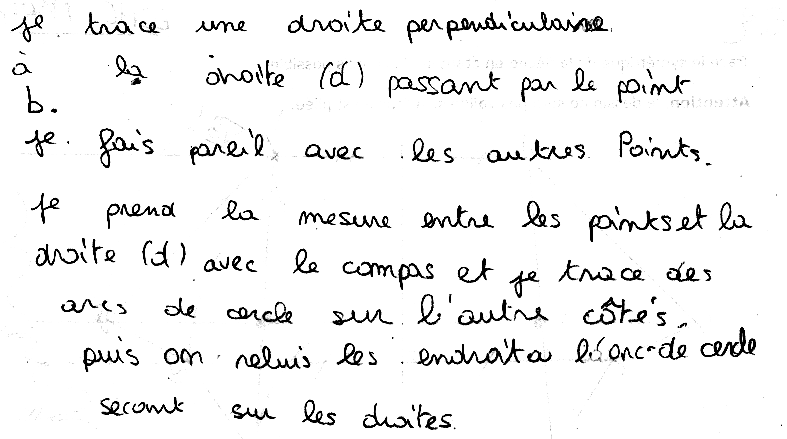 je trace une droite perpendiculaire
à la droite (d) passant par le point
b.
je fais pareil avec les autres Points.
je prend la mesure entre les points et la
droite (d) avec le compas et je trace des
arcs de cercle sur l'autre côtés.
puis on reluis les endroits l'arc de cercle
secont sur les droites.